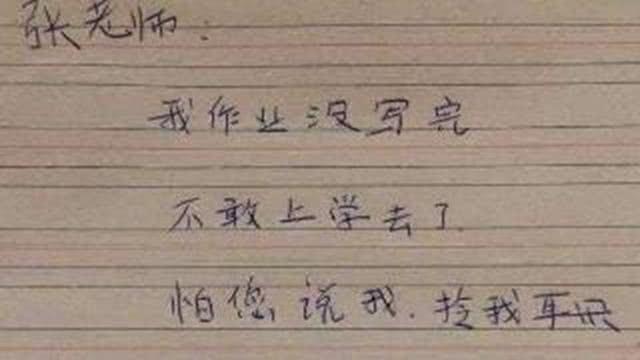 张老师:
我作业没写完
不敢上学去了.
怕您说我.拎我耳